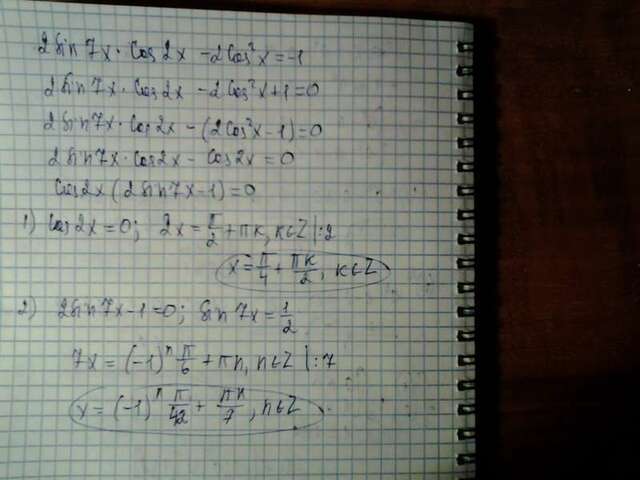 2sin7x·cos2x -2cos²x=-1
2sin7x·cos2x -2cos²x+1=0
2sin7x·cos2x-(2cos²x-1)=0
2sin7x·cos2x-cos2x=0
cos2x(2sin7x-1)=0
1) cos2x=0; 2x=π/2+πk, k∈Z |:2
x=π/4+πk/2, k∈Z
2) 2sin7x-1=0; sin7x=1/2
7x=(-1)ⁿ π/6+πn, n∈Z |:7
x=(-1)ⁿ π/42+πn/7, n∈Z